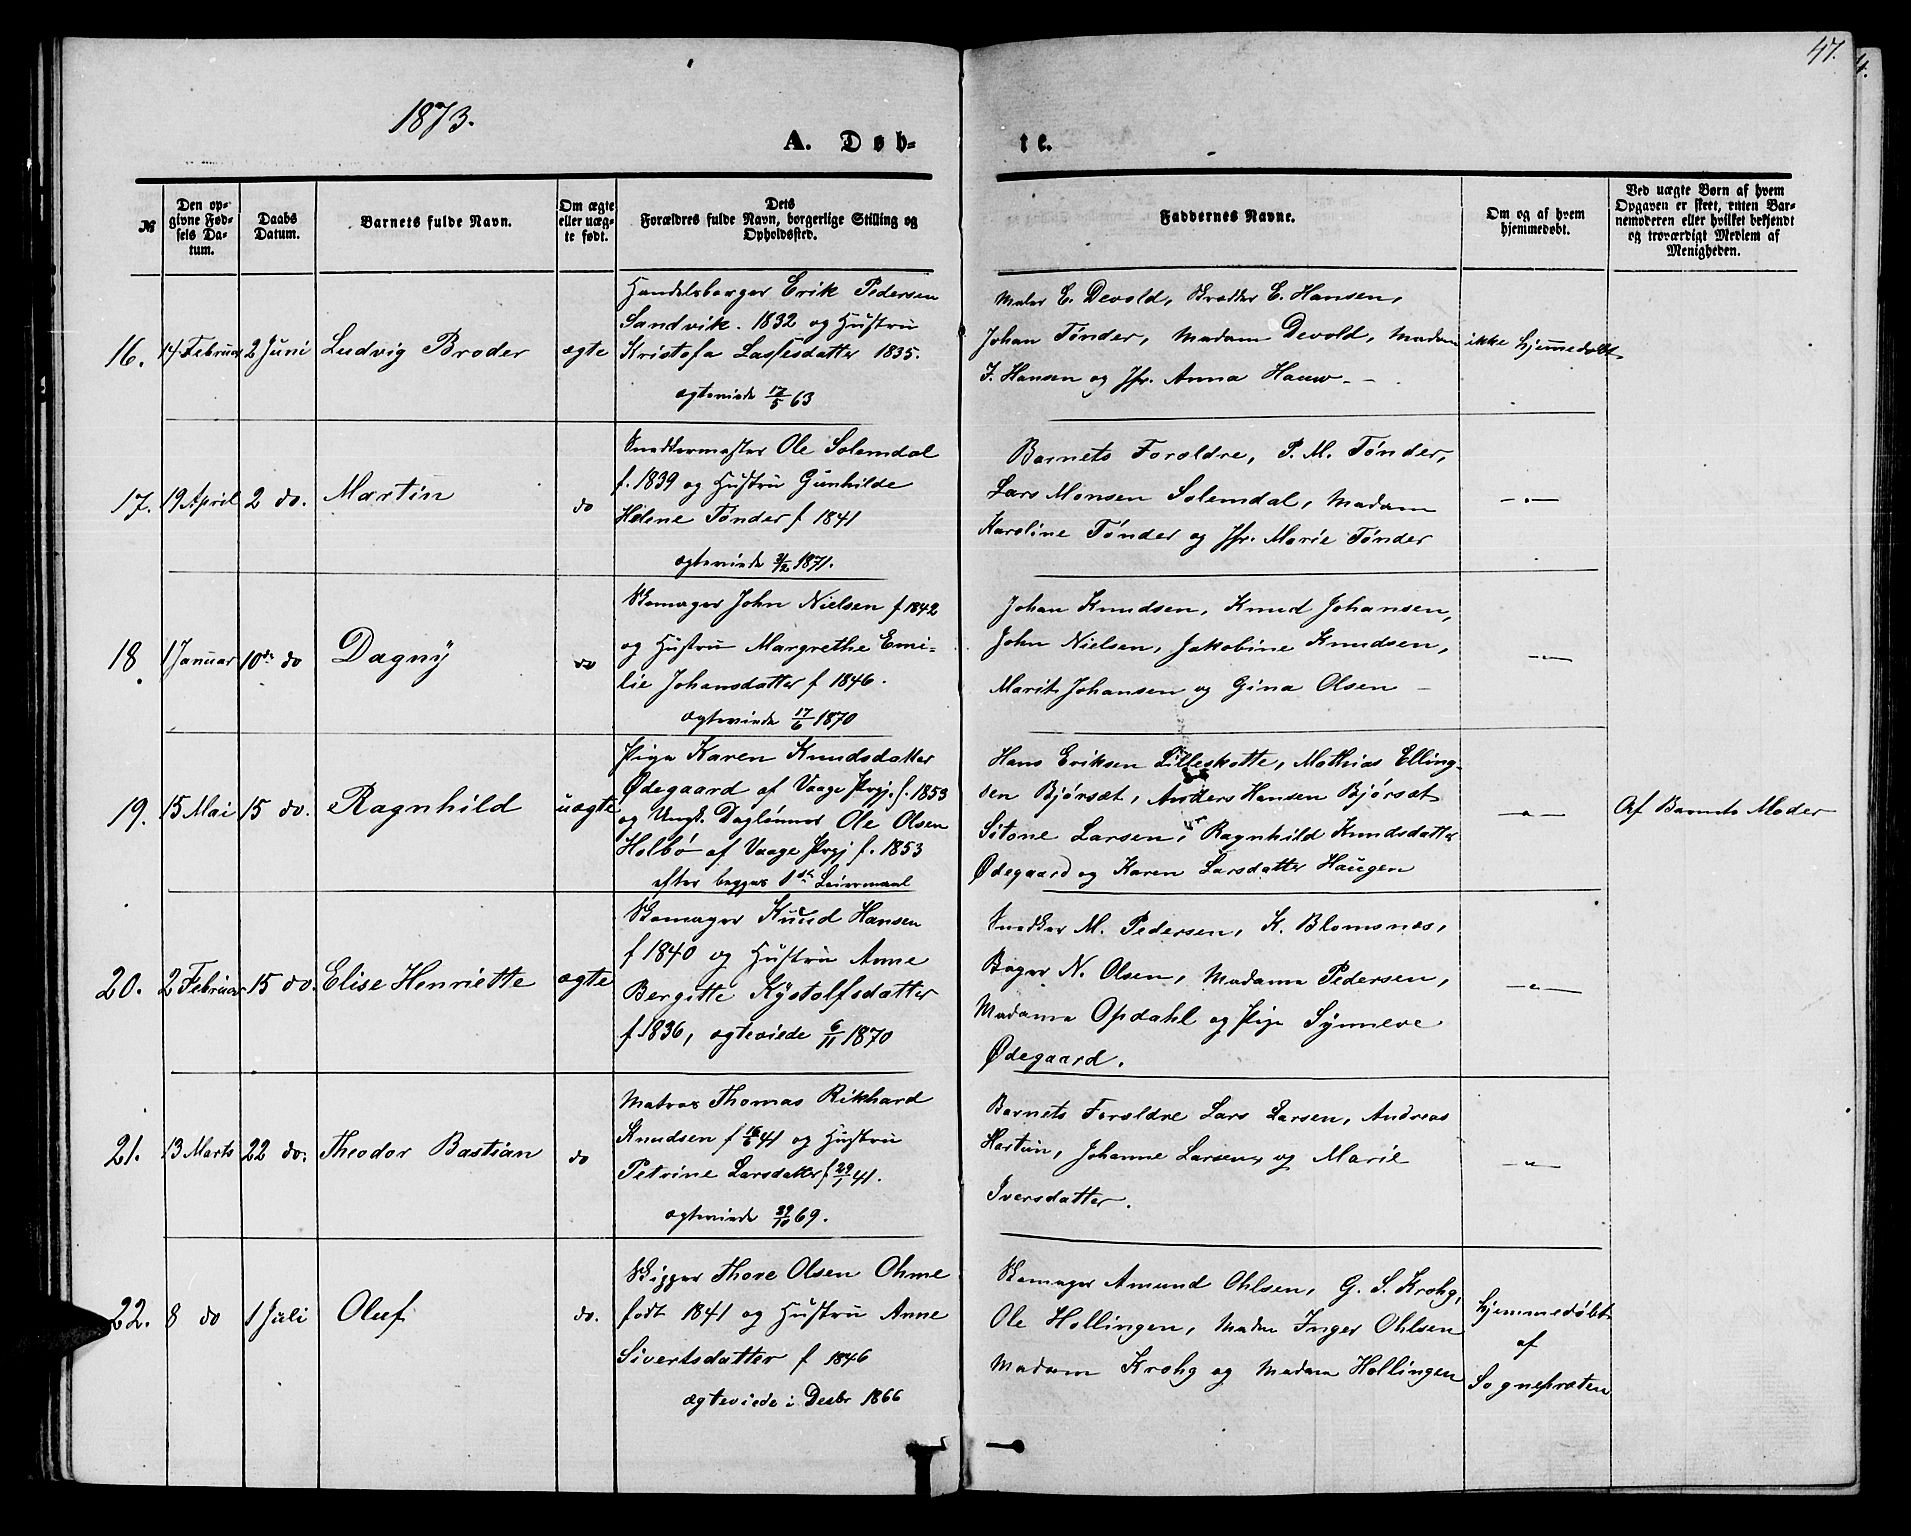 47.
4.
1873.
A. Døb-
te.
№
Den op-
givne Fød-
sels Da-
tum.
Daabs
Datum.
Barnets fulde Navn.
Om ægte
eller uæg-
te født.
Dets
Forældres fulde Navn, borgerlige Stilling og
Opholdssted.
Faddernes Navne.
Om og af hvem
hjemmedøbt.
Ved uægte Børn af hvem
Opgaven er skeet, enten Bar-
nemoderen eller hvilket bekjendt
og troværdigt Medlem af
Menigheden.
16.
14 Februar
2 Juni
Ludvig Broder
ægte
Handelsborger Erik Pedersen
Sandvik. 1832 og Hustru
Kristofa Lassesdatter 1835.
ægteviede 17/5 63
Maler E. Devold, Snedker E. Hansen,
Johan Tønder, Madam Devold, Madam
J. Hansen og Jfr. Anna Hauw - -
ikke hjemmedøbt
17.
19 April
2 do.
Martin
do
Snedkermester Ole Solemdal
f. 1839 og Hustru Gunhilde
Helene Tønder f 1841
ægteviede 3/2 1871.
Barnets Forældre, P. M. Tønder,
Lars Monsen Solemdal, Madam
Karoline Tønder og Jfr. Marie Tønder
- " -
18.
1 Januar
10de do
Dagny
do
Skomager John Nielsen f 1842
og Hustru Margrethe Emi-
lie Johansdatter f 1846.
ægteviede 17/6 1870
Johan Knudsen, Knud Johansen,
John Nielsen, Jakobine Knudsen,
Marit Johansen og Gina Olsen -
- " -
19.
15 Mai
15 do.
Ragnhild
uægte
Pige Karen Knudsdatter
Ødegaard af Vaage Prgj. f. 1853
og Ungk. Daglønner Ole Olsen
Holbø af Vaage Prgj f. 1853
efter begges 1ste Leiermaal
Hans Eriksen Lilleskotte, Mathias Elling-
sen Bjørsæt, Anders Hansen Bjørsæt
Larsen, Ragnhild Knudsdatter
Ødegaard og Karen Larsdatter Haugen
- " -
Af Barnets Moder
20.
2 Februar
15 do.
Elise Henriette
ægte
Skomager Knud Hansen
f 1840 og Hustru Anne
Bergitte Kystolfsdatter
f 1836, ægteviede 6/11 1870
Snedker M. Pedersen, K. Blomsnæs,
Bager N. Olsen, Madame Pedersen,
Madame Opdahl og Pige Synneve
Ødegaard.
- " -
21.
13 Marts
22 do.
Theodor Bastian
do
Matros Thomas Rikhard
Knudsen f 16/6 41 og Hustru
Petrine Larsdatter f 29/1 41.
ægteviede 29/10 69.
Barnets Forældre Lars Larsen, Andreas
Hartun, Johanne Larsen, og Marie
Iversdatter.
- " -
22.
8 do
1 Juli
Oluf
do.
Skipper Thore Olsen Ohme
født 1841 og Hustru Anne
Sivertsdatter f 1846
ægteviede i Desbr 1866
Skomager Amund Ohlsen, G. S. Krohg,
Ole Hollingen, Madm Inger Ohlsen
Madam Krohg og Madam Hollingen
hjemmedøbt
af
Sognepræsten